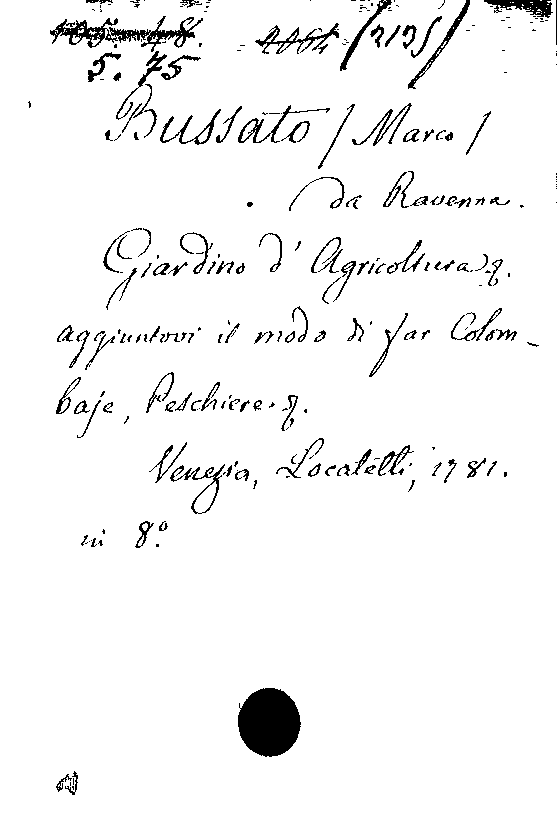 105. 48. 2064 (2135)
5. 75
Bussato / Marco /
da Ravenna.
Giardino d' Agricoltura &.
aggiuntovi il modo di far Colom-
baje, Peschiere. &.
Venezia, Locatelli, 1781.
in 8.º